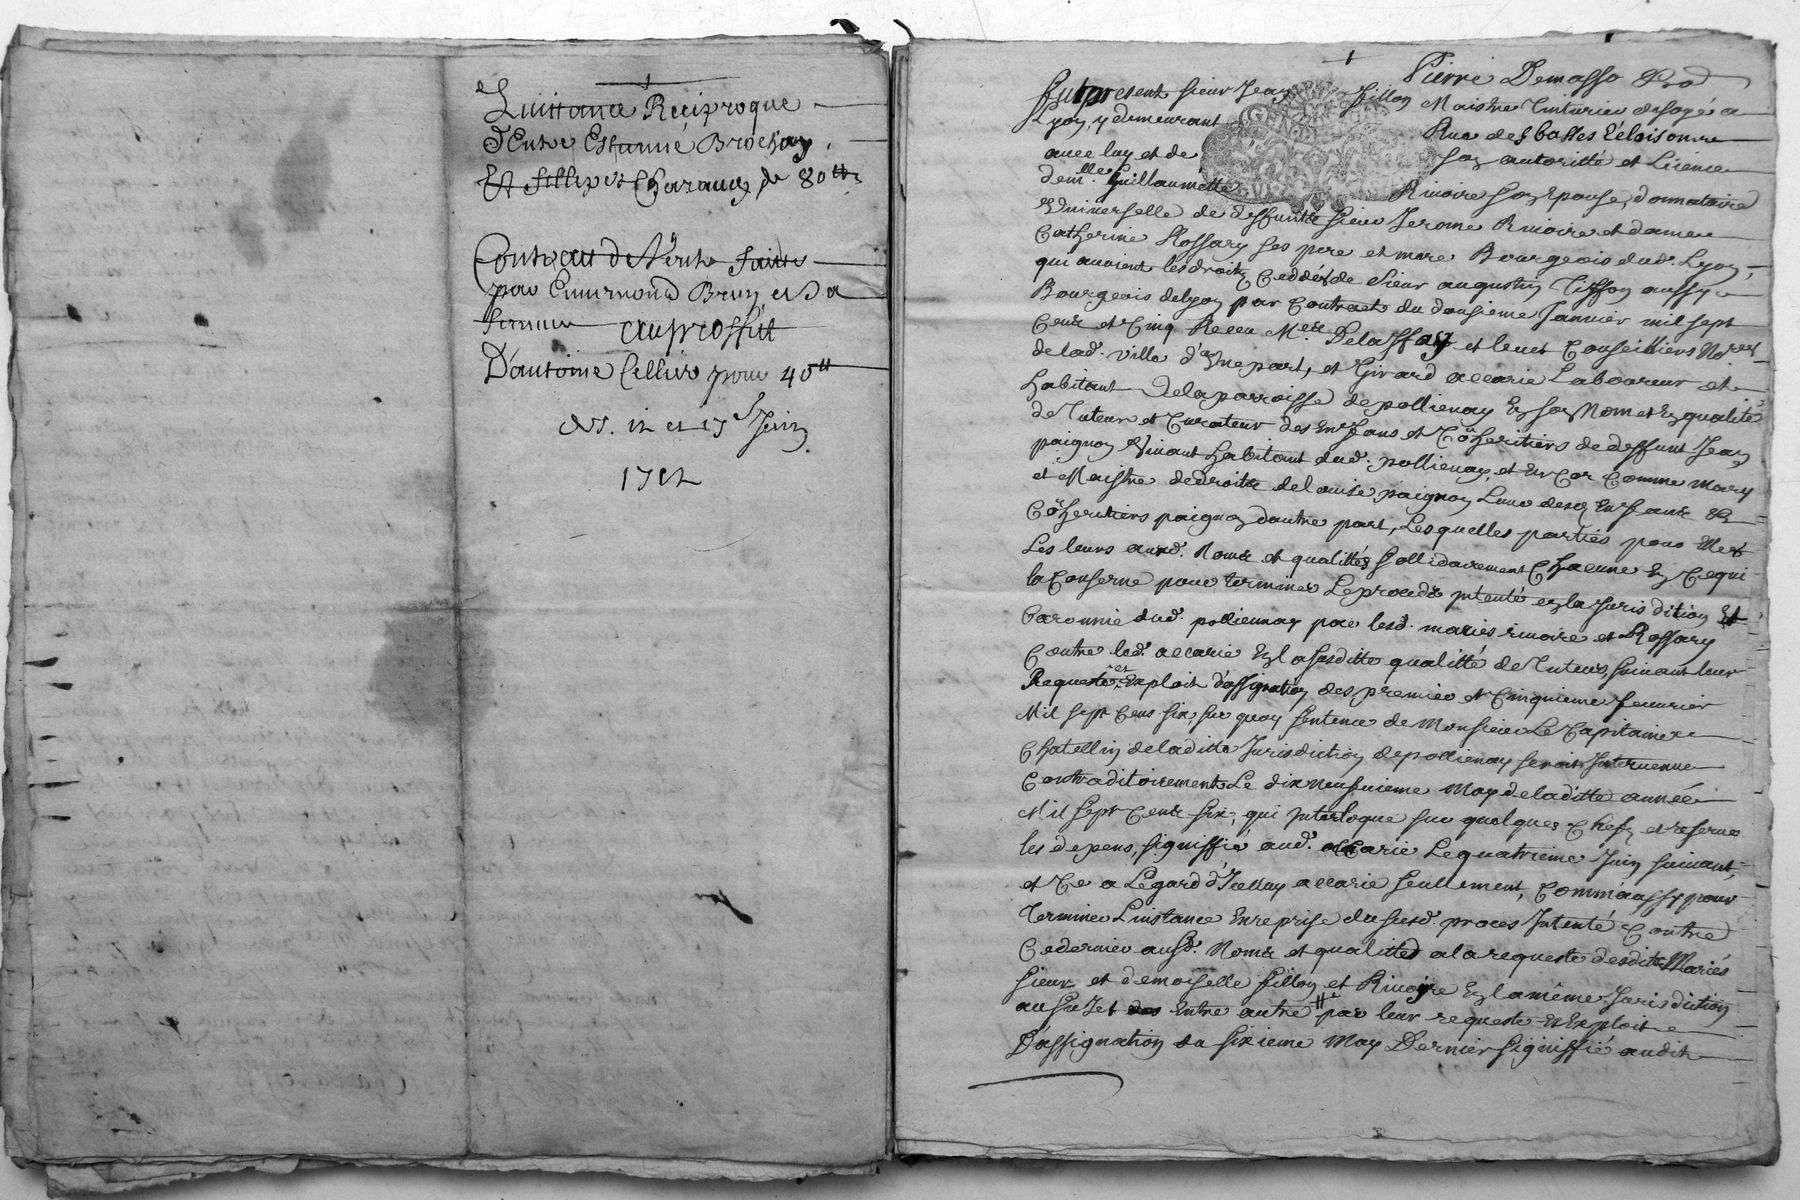 Quittance Reciproque
D'Entre Estienne Brochay
Et fillipes Charauey de 80tt
Contract de Vente faitte
par Ennemond Brun et Sa
femme au proffit
D'antoine Cellier pour 40tt
des. 12 et 17e Juin
1712
Pierre Demasso
fut present sieur Jean fillon Maistre Tinturier de soye a
Lyon, y demeurant Rue de
avec luy et de son autoritté et Licence
demlle Guillaumette Rivoire son Epouse, donnataire
Universelle de deffuntz sieur Jerome Rivoire et dame
Catherine Rossary ses pere et mere Bourgeois dud. Lyon,
qui avoient les droitz Ceddés de sieur augustin Tisson aussy
Bourgeois de lyon par Contract du dousieme Janvier mil sept
Cent et Cinq Receu Mes. Delaffay et Conseilliers Nores
de lad. ville d'Une part, et Girard accarie Laboureur et
habitant de la parroisse de pollienay En son Nom et En qualité
de Tuteur et Curateur des Enfans et Cöheritiers de deffunt Jean
paignon Vivant habitant dud. pollienay, et Encor Comme mary
et Maistre de droitz de louise paignon Lune desd Enfans &
Cöheritiers paignon dautre part, Lesquelles parties pour Elles
Les leurs ausd. Noms et qualittés sollidairement Chacune En Cequi
la Conserne pour terminer Le procedz Intenté en la Jurisdition Et
Baronnie dud. pollienay par lesd. mariés rivoire et Rossary
Contre led. accarie En la susditte qualitté de Tuteur, suivant leur
Requeste et Exploit d'assignation des premier et Cinquieme fevrier
Mil sept Cens six, sur quoy sentence de Monsieur Le Capitaine
Chatellin de laditte Jurisdiction de pollienay seroit Intervenue
Contraditoirement Le dix neufvieme May de laditte année
Mil sept Cens six, qui Interloque sur quelques Chefz et reserve
les depens, signiffié aud. accarie Le quatrieme Juin suivant
et Ce a Legard d'Icelluy accarie seullement, Comme aussy pour
Terminer Linstance En reprise du susd. proces Intenté Contre
Ce dernier ausd. Noms et qualittés a la requeste desdits Mariés
sieur et demoiselle fillon et Rivoyre En la même Jurisdiction
au sujet Entre autre par leur requeste et Exploit
D'assignation du sixieme May Dernier signiffié audit